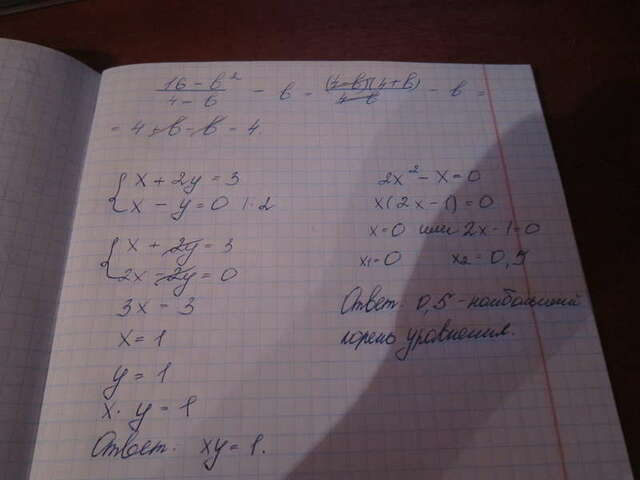 (16 - b²)/(4 - b) - b = (4-b)(4+b)/(4-b) - b =
= 4 + b - b = 4.
{ x + 2y = 3
x - y = 0 | · 2
{ x + 2y = 3
2x - 2y = 0
3x = 3
x = 1
y = 1
x · y = 1
Ответ. xy = 1.
2x² - x = 0
x(2x - 1) = 0
x = 0 или 2x - 1 = 0
x₁ = 0 x₂ = 0,5
Ответ: 0,5 - наибольший
корень уравнения.